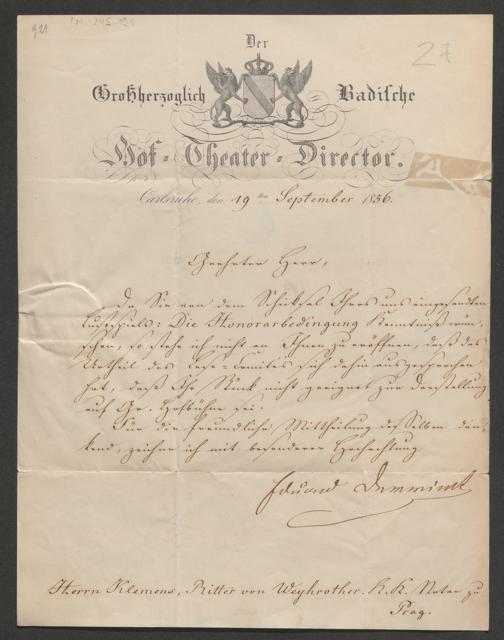 921
I.N. 245.191
27
Der
Großherzoglich Badische
Hof-Theater-Director.
Carlsruhe, den 19ten September 1856.
Geehrter Herr,
Da Sie von dem Schiksal Ihres uns eingesendten
Lustspiels: Die Honorarbedingung Kenntniß wün-
schen, so stehe ich nicht an Ihnen zu eröffnen, daß das
Urtheil des Lese-Comites sich dahin ausgesprochen
hat, daß Ihr Stück nicht geeignet zur Darstellung
auf Gr. Hofbühne sei.
Für die freundliche Mittheilung desselben dan-
kend, zeichne ich mit besonderer Hochachtung
Eduard Devrient
Herrn Klemens, Ritter von Weyhrother. K. K. Notar zu
Prag.